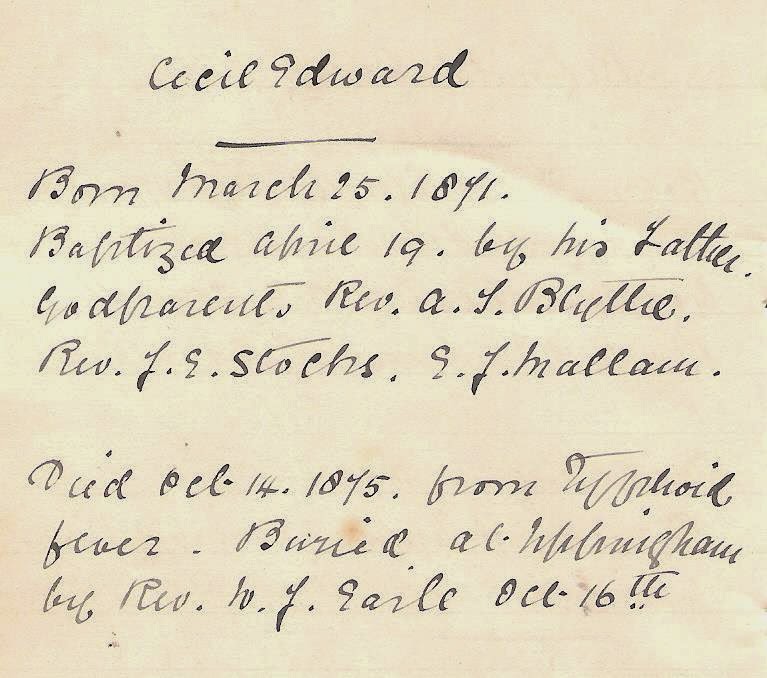 Cecil Edward
Born March 25. 1871.
Baptized April 19. by his Father.
Godparents Rev. A. S. Blythe.
Rev. J. E. Stocks. E. J. Mallam.
Died Oct 14. 1875. from Typhoid
fever. Buried at Uppingham
by Rev. W. J. Earle Oct 16th